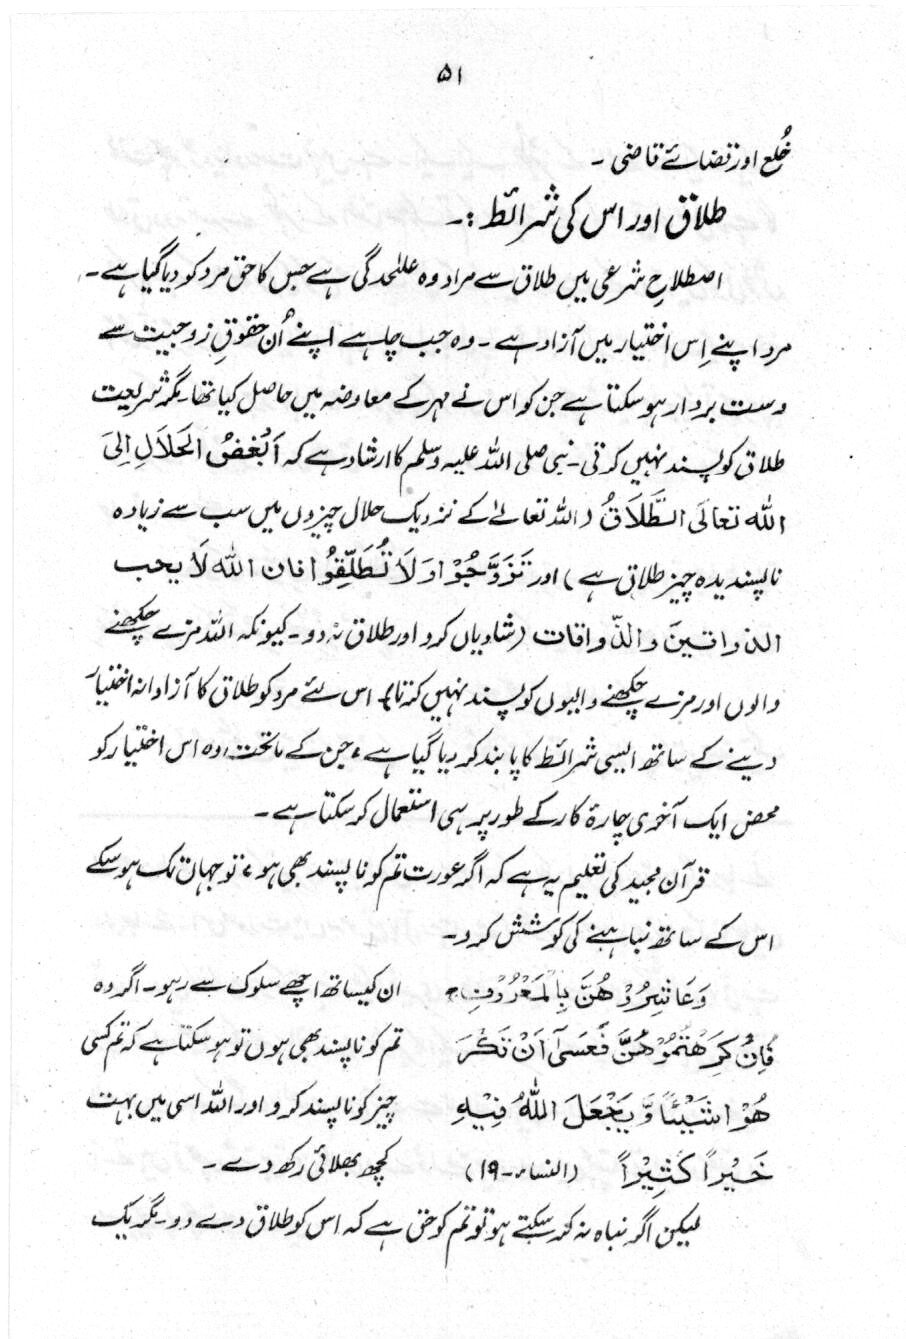 ۵۱
خُلع اور قضائے قاضی ۔
طلاق اور اس کی شرائط :۔
اصطلاحِ شرعی میں طلاق سے مراد وہ علیٰحدگی ہے جس کا حق مرد کو دیا گیا ہے ۔
مرد اپنے اِس اختیار میں آزاد ہے ۔ وہ جب چاہے اپنے اُن حقوقِ زوجیت سے
دست بردار ہو سکتا ہے جن کو اس نے مہر کے معاوضہ میں حاصل کیا تھا۔ مگر شریعت
طلاق کو پسند نہیں کرتی ۔ نبی صلی اللہ علیہ وسلم کا ارشاد ہے کہ اَبْغَضُ الْحَلَالِ اِلیَ
اللّٰہ تعَالَی الطَّلَاقُ (اللہ تعالےٰ کے نزدیک حلال چیزوں میں سب سے زیادہ
ناپسندیدہ چیز طلاق ہے) اور تَزَوَّجُوْا وَلَا تُطَلِّقُوْا فان اللّٰہ لَا یحب
الذواقینَ والذّواقات (شادیاں کرو اور طلاق نہ دو ۔ کیونکہ اللہ مزے چکھنے
والوں اور مزے چکھنے والیوں کو پسند نہیں کرتا) اس لئے مرد کو طلاق کا آزادانہ اختیار
دینے کے ساتھ ایسی شرائط کا پابند کر دیا گیا ہے، جن کے ماتحت وہ اس اختیار کو
محض ایک آخری چارۂ کار کے طور پر ہی استعمال کر سکتا ہے ۔
قرآن مجید کی تعلیم یہ ہے کہ اگر عورت تم کو ناپسند بھی ہو، تو جہاں تک ہو سکے
اس کے ساتھ نباہنے کی کوشش کرو ۔
وَعَاشِرُوْهُنَّ بِالْمَعْرُوْفِ ج ان کیساتھ اچھے سلوک سے رہو ۔ اگر وہ
فَاِنْ كَرِهْتُمُوْهُنَّ فَعَسٰٓى اَنْ تَكْرَ تم کو ناپسند بھی ہوں تو ہو سکتا ہے کہ تم کسی
هُوْا شَيْئًا وَّ يَجْعَلَ اللّٰهُ فِيْهِ چیز کو ناپسند کرو اور اللہ اسی میں بہت
خَيْرًا كَثِيْرًا (النساء ۔ ۱۹) کچھ بھلائی رکھ دے ۔
لیکن اگر نباہ نہ کر سکتے ہو تو تم کو حق ہے کہ اس کو طلاق دے دو ۔ مگر یک